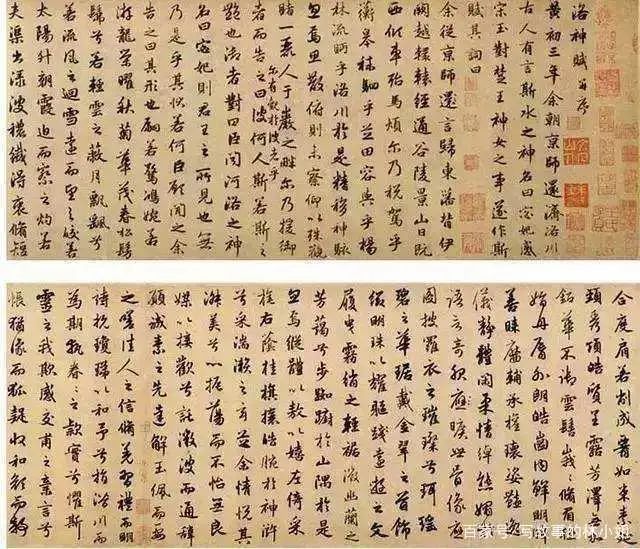 洛神賦 并序
黃初三年余朝京師還濟洛川
古人有言斯水之神名曰宓妃感
宋玉對楚王神女之事遂作斯
賦其詞曰
余從京師還言歸東藩背伊
闕越轘轅經通谷陵景山日既
西傾車殆馬煩尔乃稅駕乎
蘅皋秣駟乎芝田容與乎楊
林流眄乎洛川於是精移神駭
忽焉思散俯則未察仰以殊觀
睹一麗人于巖之畔尔乃援御
者而告之曰尔有覿於彼者乎彼何人斯若斯
之艷也御者對曰臣聞河洛之神
名曰宓妃則君王之所見也無
乃是乎其狀若何臣願聞之余
告之曰其形也翩若驚鴻婉若
游龍榮曜秋菊華茂春松髣
髴兮若輕雲之蔽月飄颻兮
若流風之迴雪遠而望之皎若
太陽升朝霞迫而察之灼若
夫蕖出淥波穠纖得衷脩短
合度肩若削成腰如束素延
頸秀項皓質呈露芳澤無加
鉛華不御雲髻峩峩脩眉聯
娟丹脣外朗皓齒內鮮明眸
善睞靨輔承權瓌姿艷逸
儀靜體閑柔情綽態媚於
語言奇服曠世骨像應
圖披羅衣之璀璨兮珥瑤
碧之華琚戴金翠之首飾
綴明珠以耀軀踐遠遊之文
履曳霧綃之輕裾微幽蘭之
芳藹兮步踟躕於山隅於是
忽焉縱體以遨以嬉左倚采
旄右蔭桂旗攘皓腕於神滸
兮采湍瀨之玄芝余情悅其
淑美兮心振蕩而不怡無良
媒以接歡兮託微波而通辭
願誠素之先達解玉佩而要
之嗟佳人之信脩羌習禮而明
詩抗瓊珶以和予兮指潛川而
為期執眷眷之款實兮懼斯
靈之我欺感交甫之棄言兮
悵猶豫而狐疑收和顏而靜
百家号/写故事的林小姐